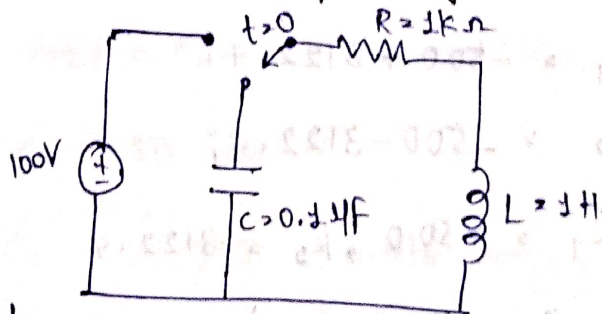 t=0
R=1kΩ
100V
+
-
C=0.1μF
L=1H